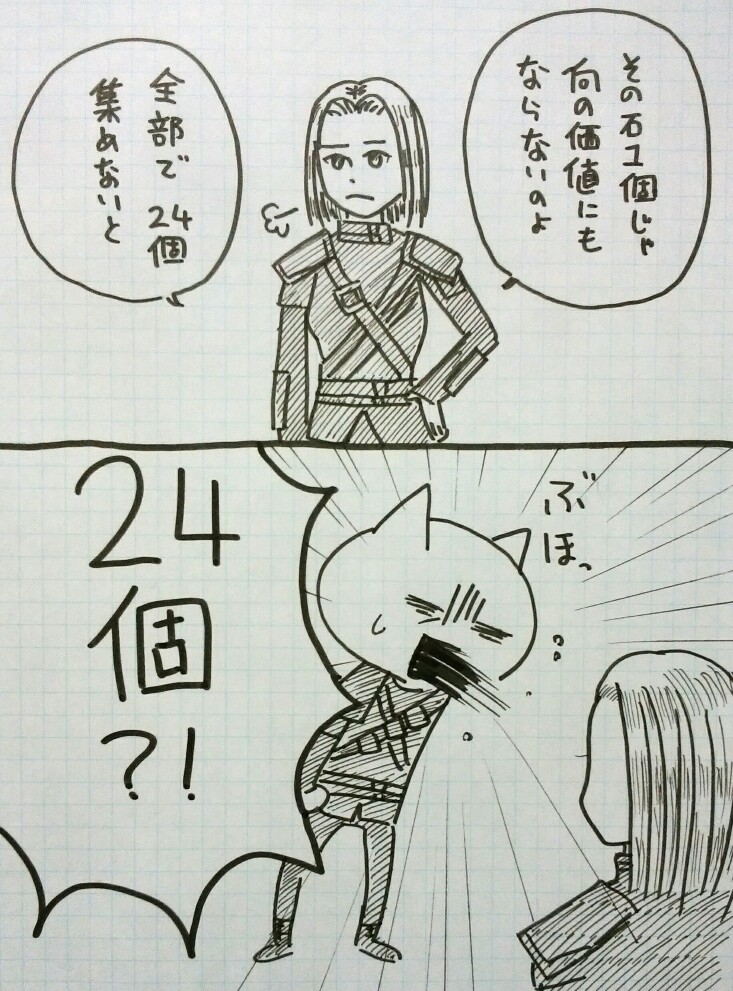 その石1個じゃ
何の価値にも
ならないのよ
全部で 24個
集めないと
ぶほっ
24
個
?!